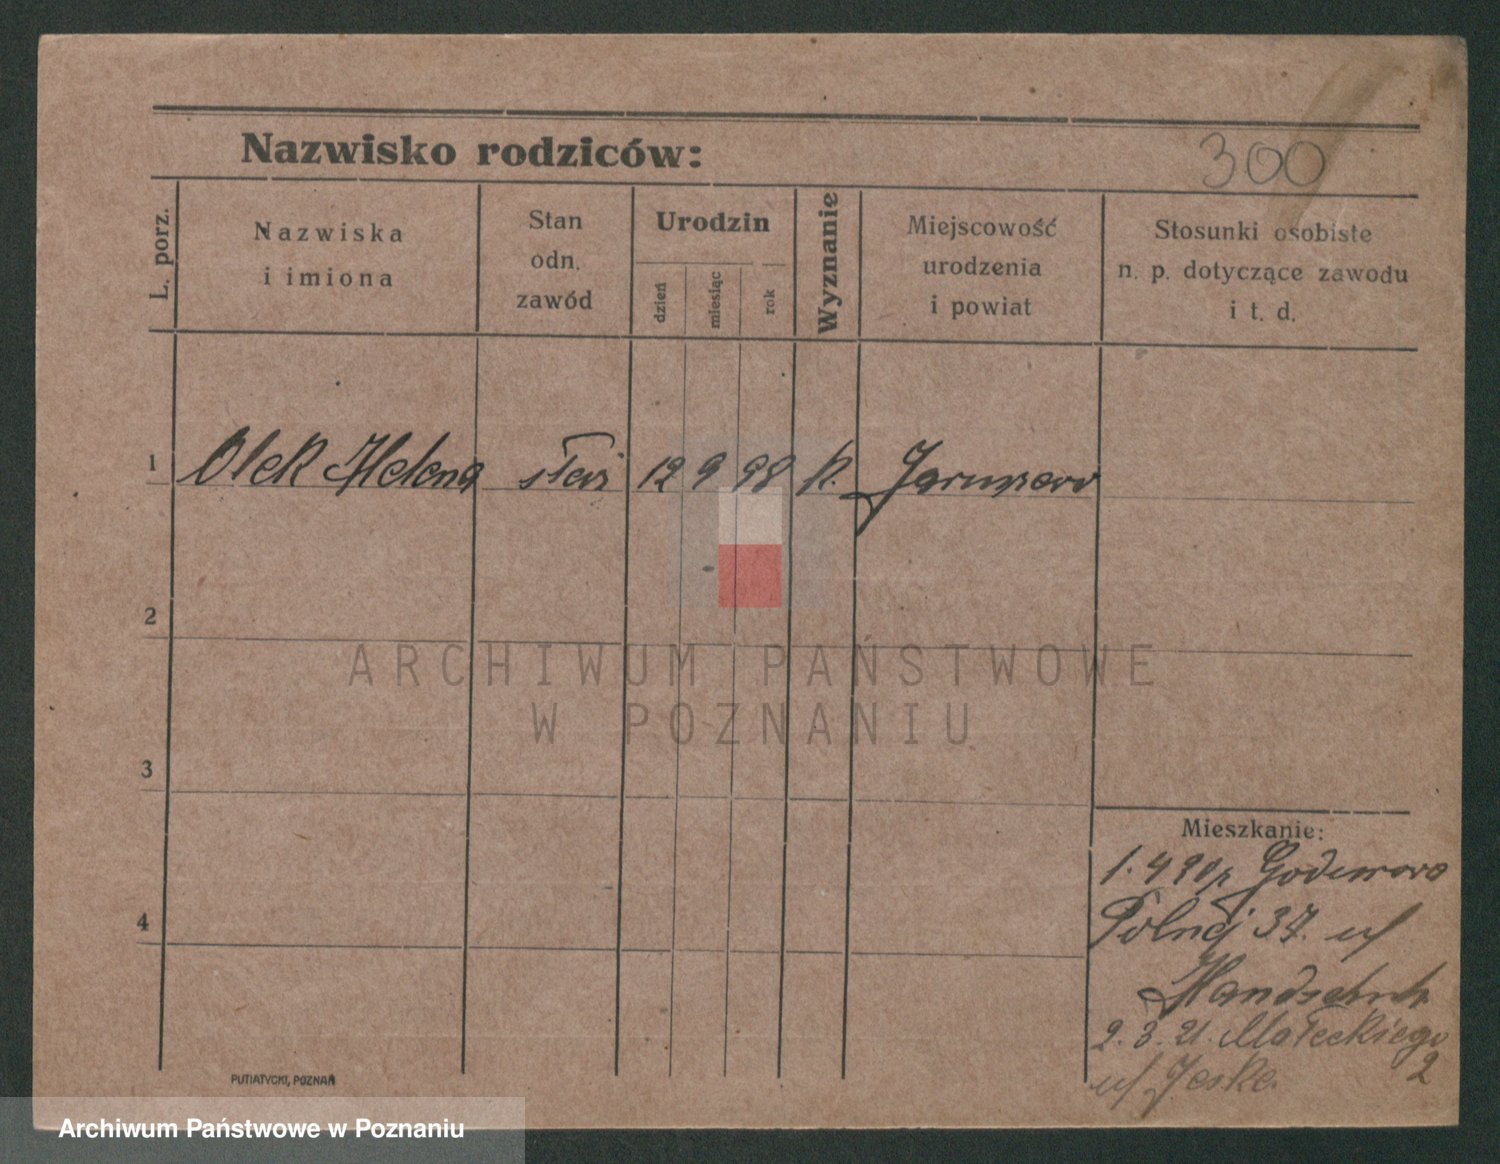 Nazwisko rodziców:
300
L. porz.
Nazwiska
i imiona
Stan
odn.
zawód
Urodzin
dzień
miesiąc
rok
Wyznanie
Miejscowość
urodzenia
i powiat
Stosunki osobiste
n. p. dotyczące zawodu
i t. d.
1 Olek Helena 12 9 98 k.
2
ARCHIWUM PAŃSTWOWE
W POZNANIU
3
4
Mieszkanie:
1.4
Polnej 37.
Handschuh
2. 3. 21. Małeckiego
2
Jeske.
PUTIATYCKI, POZNAŃ
Archiwum Państwowe w Poznaniu